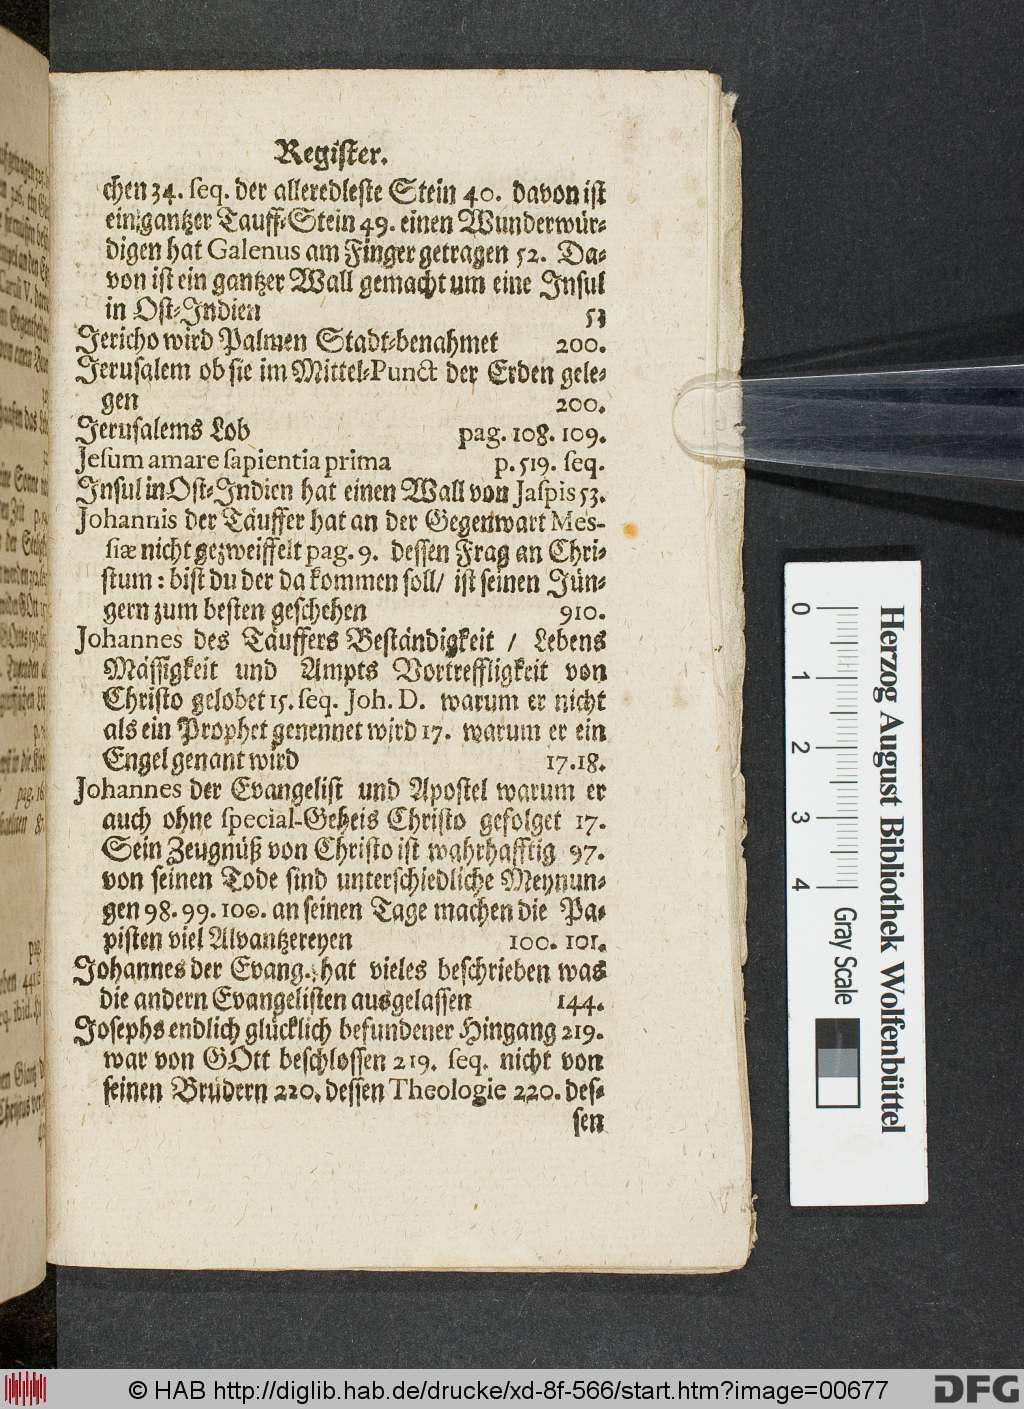 Register.
chen 34. seq. der alleredleste Stein 40. davon ist
ein gantzer Tauff-Stein 49. einen Wunderwür-
digen hat Galenus am Finger getragen 52. Da-
von ist ein gantzer Wall gemacht um eine Insul
in Ost-Indien 53
Jericho wird Palmen Stadt-benahmet 200.
Jerusalem ob sie im Mittel-Punct der Erden gele-
gen 200.
Jerusalems Lob pag. 108. 109.
Jesum amare sapientia prima p. 519. seq.
Insul in Ost-Indien hat einen Wall von Jaspis 53.
Johannis der Täuffer hat an der Gegenwart Mes-
siæ nicht gezweiffelt pag. 9. dessen Frag an Chri-
stum: bist du der da kommen soll/ ist seinen Jün-
gern zum besten geschehen 910.
Johannes des Täuffers Beständigkeit / Lebens
Mässigkeit und Ampts Vortreffligkeit von
Christo gelobet 15. seq. Joh. D. warum er nicht
als ein Prophet genennet wird 17. warum er ein
Engel genant wird 17.18.
Johannes der Evangelist und Apostel warum er
auch ohne special-Geheis Christo gefolget 17.
Sein Zeugnüß von Christo ist wahrhafftig 97.
von seinen Tode sind unterschiedliche Meynun-
gen 98. 99. 100. an seinen Tage machen die Pa-
pisten viel Alvantzereyen 100. 101.
Johannes der Evang. hat vieles beschrieben was
die andern Evangelisten ausgelassen 144.
Josephs endlich glücklich befundener Hingang 219.
war von GOtt beschlossen 219. seq. nicht von
seinen Brüdern 220. dessen Theologie 220. des-
sen
0 1 2 3 4
Gray Scale
Herzog August Bibliothek Wolfenbüttel
© HAB http://diglib.hab.de/drucke/xd-8f-566/start.htm?image=00677
DFG